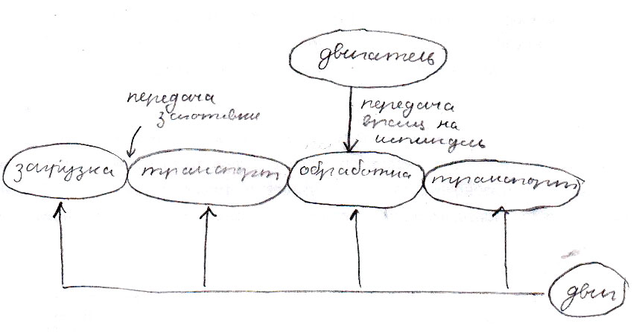 двигатель
передача
заготовки
передача
вращ на
шпиндель
загрузка
транспорт
обработка
транспорт
двиг